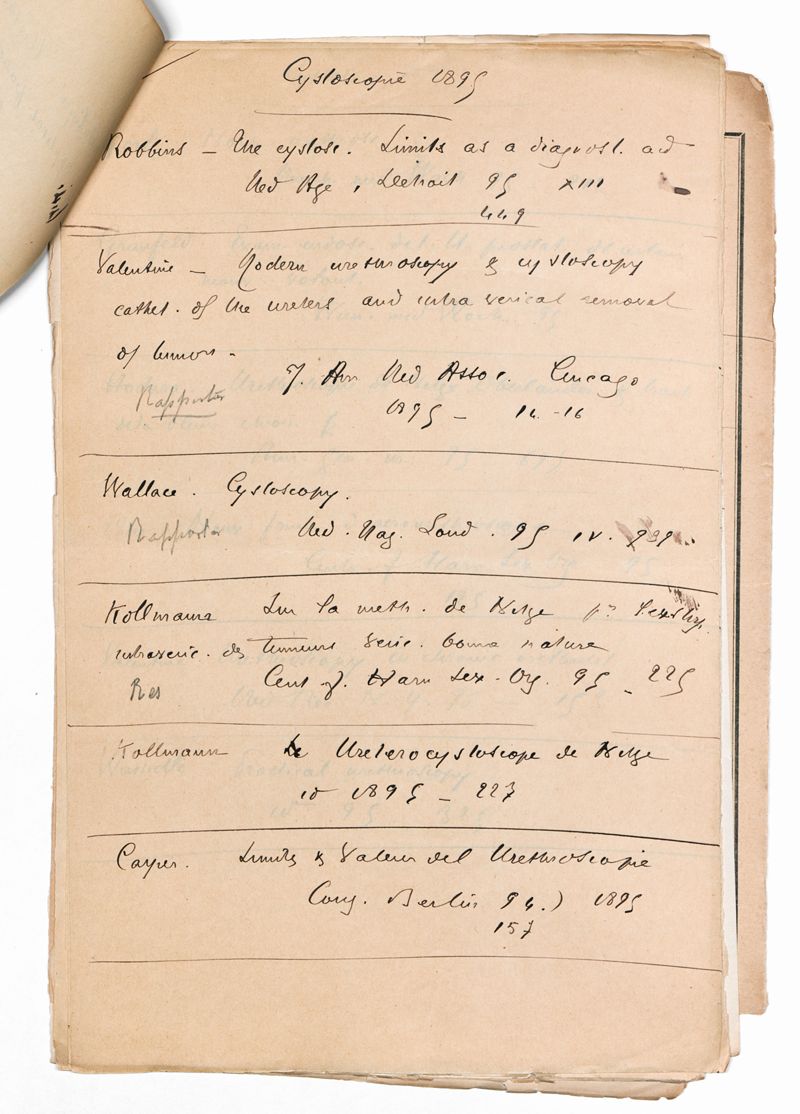 Cystoscopie 1895
Robbins — The cystosc. Limits as a diagnost. aid
Med Age, Detroit 95 XIII
449
Valentine — Modern urethroscopy & cystoscopy
cathet. of the ureters and intra vesical removal
of tumors.
J. Am Med Assoc. Chicago
Rapporter
1895 — 14-16
Wallace. Cystoscopy.
Rapporter Med. Mag. Lond. 95 IV. 939
Kollmann Sur la meth. de Nitze pr l'extirp.
intravesic. des tumeurs vesic. bonne nature
Res Cent f. Harn Sex. Org. 95 — 225
Kollmann Le Ureterocystoscope de Nitze
id 1895 — 227
Casper. Limites & Valeur del Urethroscopie
Cong. Berlin 94.) 1895
157